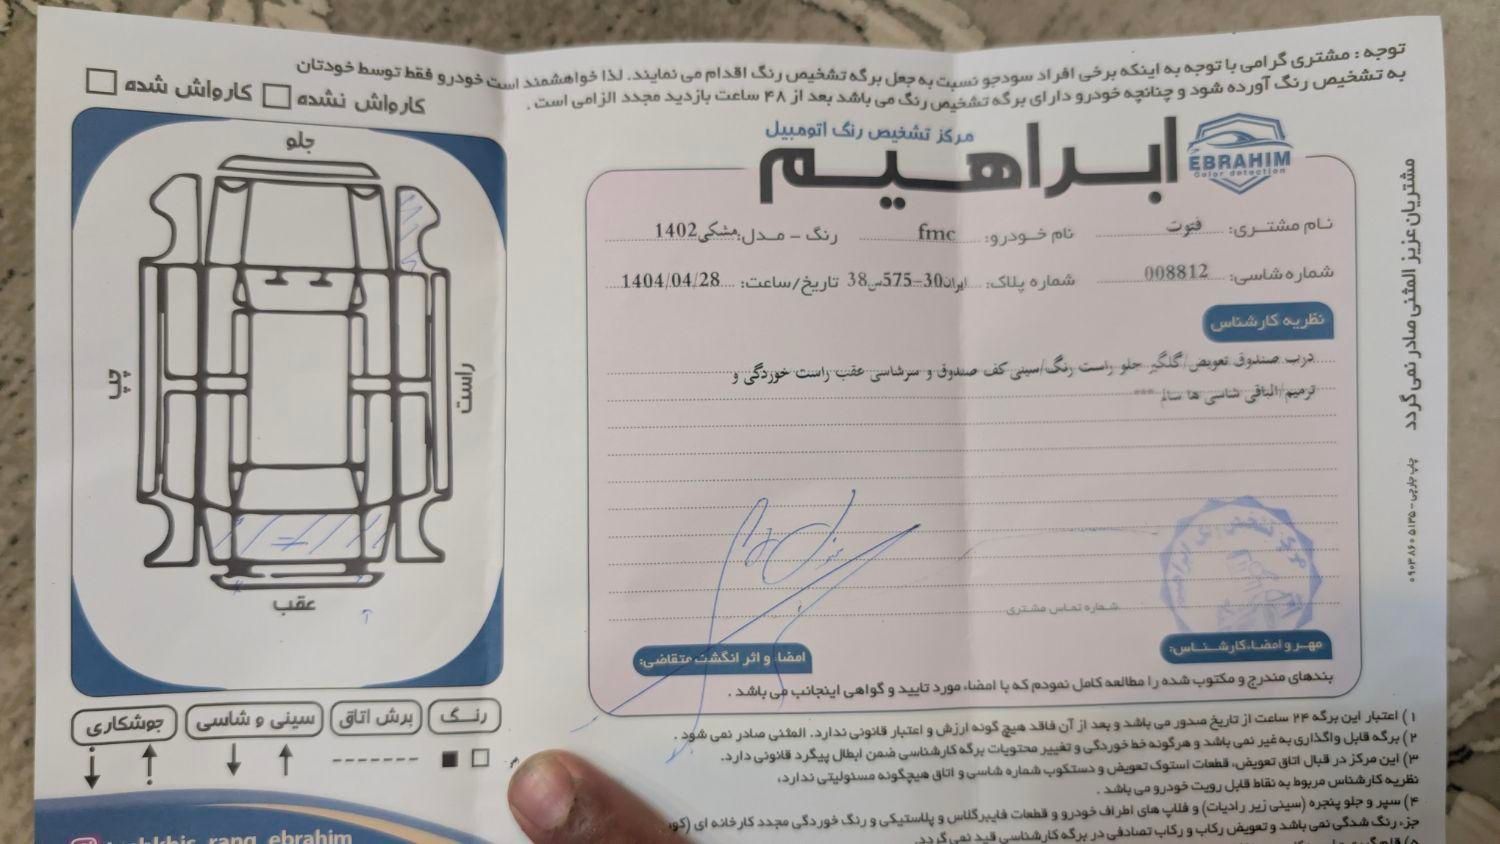 توجه : مشتری گرامی با توجه به اینکه برخی افراد سودجو نسبت به جعل برگه تشخیص رنگ اقدام می نمایند. لذا خواهشمند است خودرو فقط توسط خودتان
به تشخیص رنگ آورده شود و چنانچه خودرو دارای برگه تشخیص رنگ می باشد بعد از ۴۸ ساعت بازدید مجدد الزامی است .
کارواش نشده
کارواش شده
مرکز تشخیص رنگ اتومبیل
ابراهیم
EBRAHIM
Color detection
نام مشتری: فتوت
نام خودرو: fmc
رنگ - مدل: مشکی 1402
شماره شاسی: 008812
شماره پلاک: ایران30-575س38
تاریخ/ساعت: 1404/04/28
نظریه کارشناس
درب صندوق تعویض/گلگیر جلو راست رنگ/سینی کف صندوق و سرشاسی عقب راست خوردگی و
ترمیم/الباقی شاسی ها سالم ***
شماره تماس مشتری
مهر و امضاء کارشناس:
امضاء و اثر انگشت متقاضی:
بندهای مندرج و مکتوب شده را مطالعه کامل نمودم که با امضاء مورد تایید و گواهی اینجانب می باشد .
۱) اعتبار این برگه ۲۴ ساعت از تاریخ صدور می باشد و بعد از آن فاقد هیچ گونه ارزش و اعتبار قانونی ندارد. المثنی صادر نمی شود .
۲) برگه قابل واگذاری به غیر نمی باشد و هرگونه خط خوردگی و تغییر محتویات برگه کارشناسی ضمن ابطال پیگرد قانونی دارد.
۳) این مرکز در قبال اتاق تعویض، قطعات استوک تعویض و دستکوب شماره شاسی و اتاق هیچگونه مسئولیتی ندارد،
نظریه کارشناس مربوط به نقاط قابل رویت خودرو می باشد .
۴) سپر و جلو پنجره (سینی زیر رادیات) و فلاپ های اطراف خودرو و قطعات فایبرگلاس و پلاستیکی و رنگ خوردگی مجدد کارخانه ای
جزء رنگ شدگی نمی باشد و تعویض رکاب و رکاب تصادفی در برگه کارشناسی قید نمی گردد.
مشتریان عزیز المثنی صادر نمی گردد
جلو
چپ
راست
عقب
رنگ
برش اتاق
سینی و شاسی
جوشکاری
rang_ebrahim